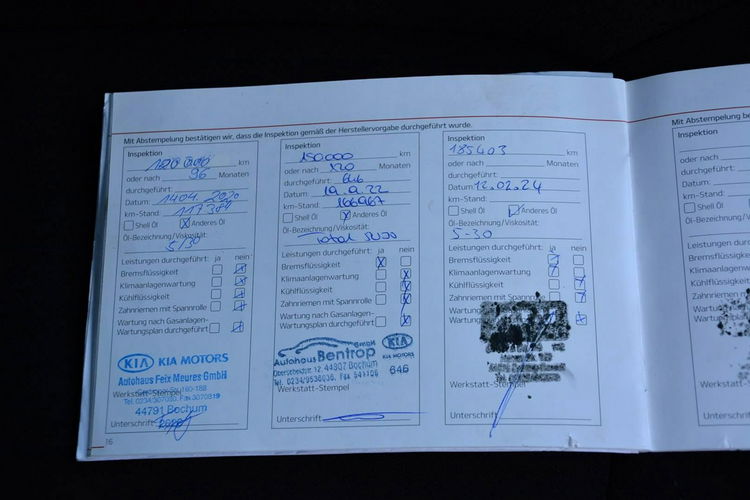 Mit Abstempelung bestätigen wir, dass die Inspektion gemäß der Herstellervorgabe durchgeführt wurde.
Inspektion
120 000 km
oder nach 96 Monaten
durchgeführt:
Datum: 14.04.2020
km-Stand:
Shell Öl X Anderes Öl
Öl-Bezeichnung/Viskosität:
5/30
Leistungen durchgeführt: ja nein
Bremsflüssigkeit
Klimaanlagenwartung
Kühlflüssigkeit
Zahnriemen mit Spannrolle
Wartung nach Gasanlagen-
Wartungsplan durchgeführt
KIA KIA MOTORS
Autohaus Feix Meures GmbH
Werkstatt-Stempel
44791 Bochum
Unterschrift
16
Inspektion
150.000 km
oder nach 120 Monaten
durchgeführt:
Datum: 19.9.22
km-Stand: 166967
Shell Öl X Anderes Öl
Öl-Bezeichnung/Viskosität:
Total
Leistungen durchgeführt: ja nein
Bremsflüssigkeit
Klimaanlagenwartung
Kühlflüssigkeit
Zahnriemen mit Spannrolle
Wartung nach Gasanlagen-
Wartungsplan durchgeführt
Autohaus Bentrop GmbH
KIA MOTORS
12, 44807 Bochum
646
Werkstatt-Stempel
Unterschrift
Inspektion
185403 km
oder nach Monaten
durchgeführt:
Datum: 12.02.24
km-Stand:
Shell Öl Anderes Öl
Öl-Bezeichnung/Viskosität:
5-30
Leistungen durchgeführt: ja nein
Bremsflüssigkeit
Klimaanlagenwartung
Kühlflüssigkeit
Zahnriemen mit
Werkstatt-Stempel
Unterschrift
Mit Abstempelung bestätigen w
Inspektion
oder nach
durchgeführt:
Datum:
km-Stand:
Shell Öl
Öl-Bezeichnung/Vis
Leistungen durchg
Bremsflüssigkeit
Klimaanlagenwart
Kühlflüssigkeit
Zahnriemen mit S